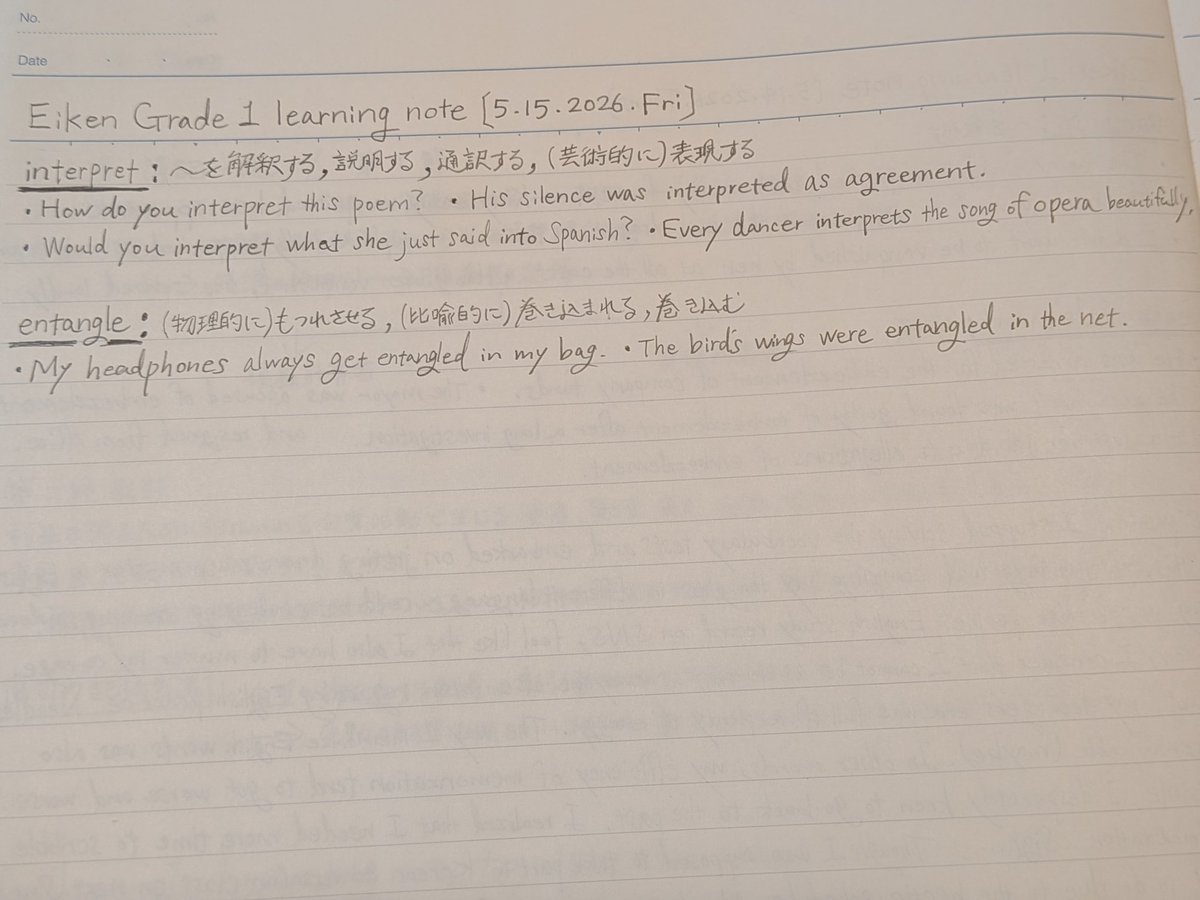 No.
Date
Eiken Grade 1 learning note [5.15.2026.Fri]
interpret: ～を解釈する, 説明する, 通訳する, (芸術的に)表現する
・How do you interpret this poem? ・His silence was interpreted as agreement.
・Would you interpret what she just said into Spanish? ・Every dancer interprets the song of opera beautifully.
entangle: (物理的に)もつれさせる, (比喩的に)巻き込まれる, 巻き込む
・My headphones always get entangled in my bag. ・The bird's wings were entangled in the net.